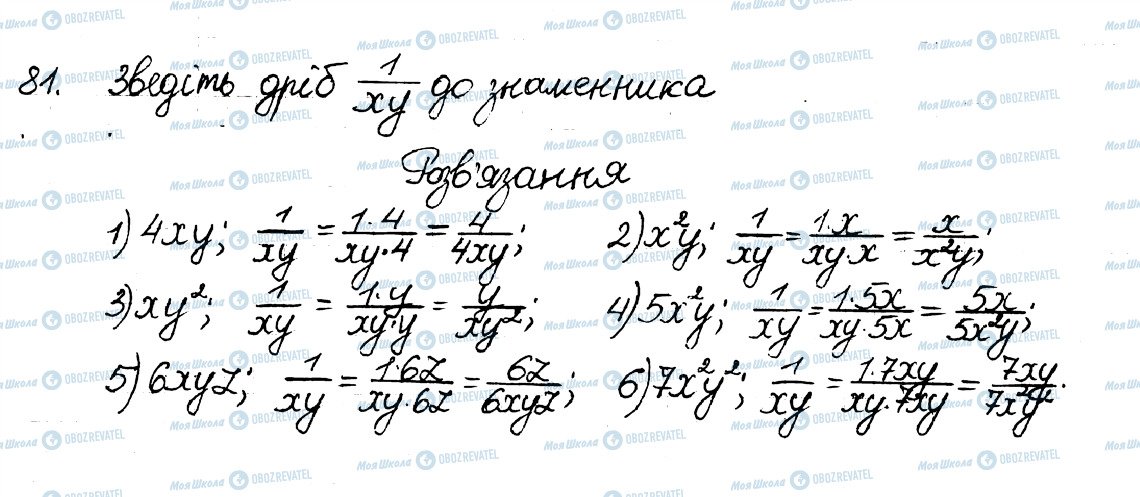 81. Зведіть дріб 1/xy до знаменника
Розв'язання
1) 4xy; 1/xy = 1·4/xy·4 = 4/4xy; 2) x²y; 1/xy = 1·x/xy·x = x/x²y;
3) xy²; 1/xy = 1·y/xy·y = y/xy²; 4) 5x²y; 1/xy = 1·5x/xy·5x = 5x/5x²y;
5) 6xyz; 1/xy = 1·6z/xy·6z = 6z/6xyz; 6) 7x²y²; 1/xy = 1·7xy/xy·7xy = 7xy/7x²y².
Моя Школа OBOZREVATEL